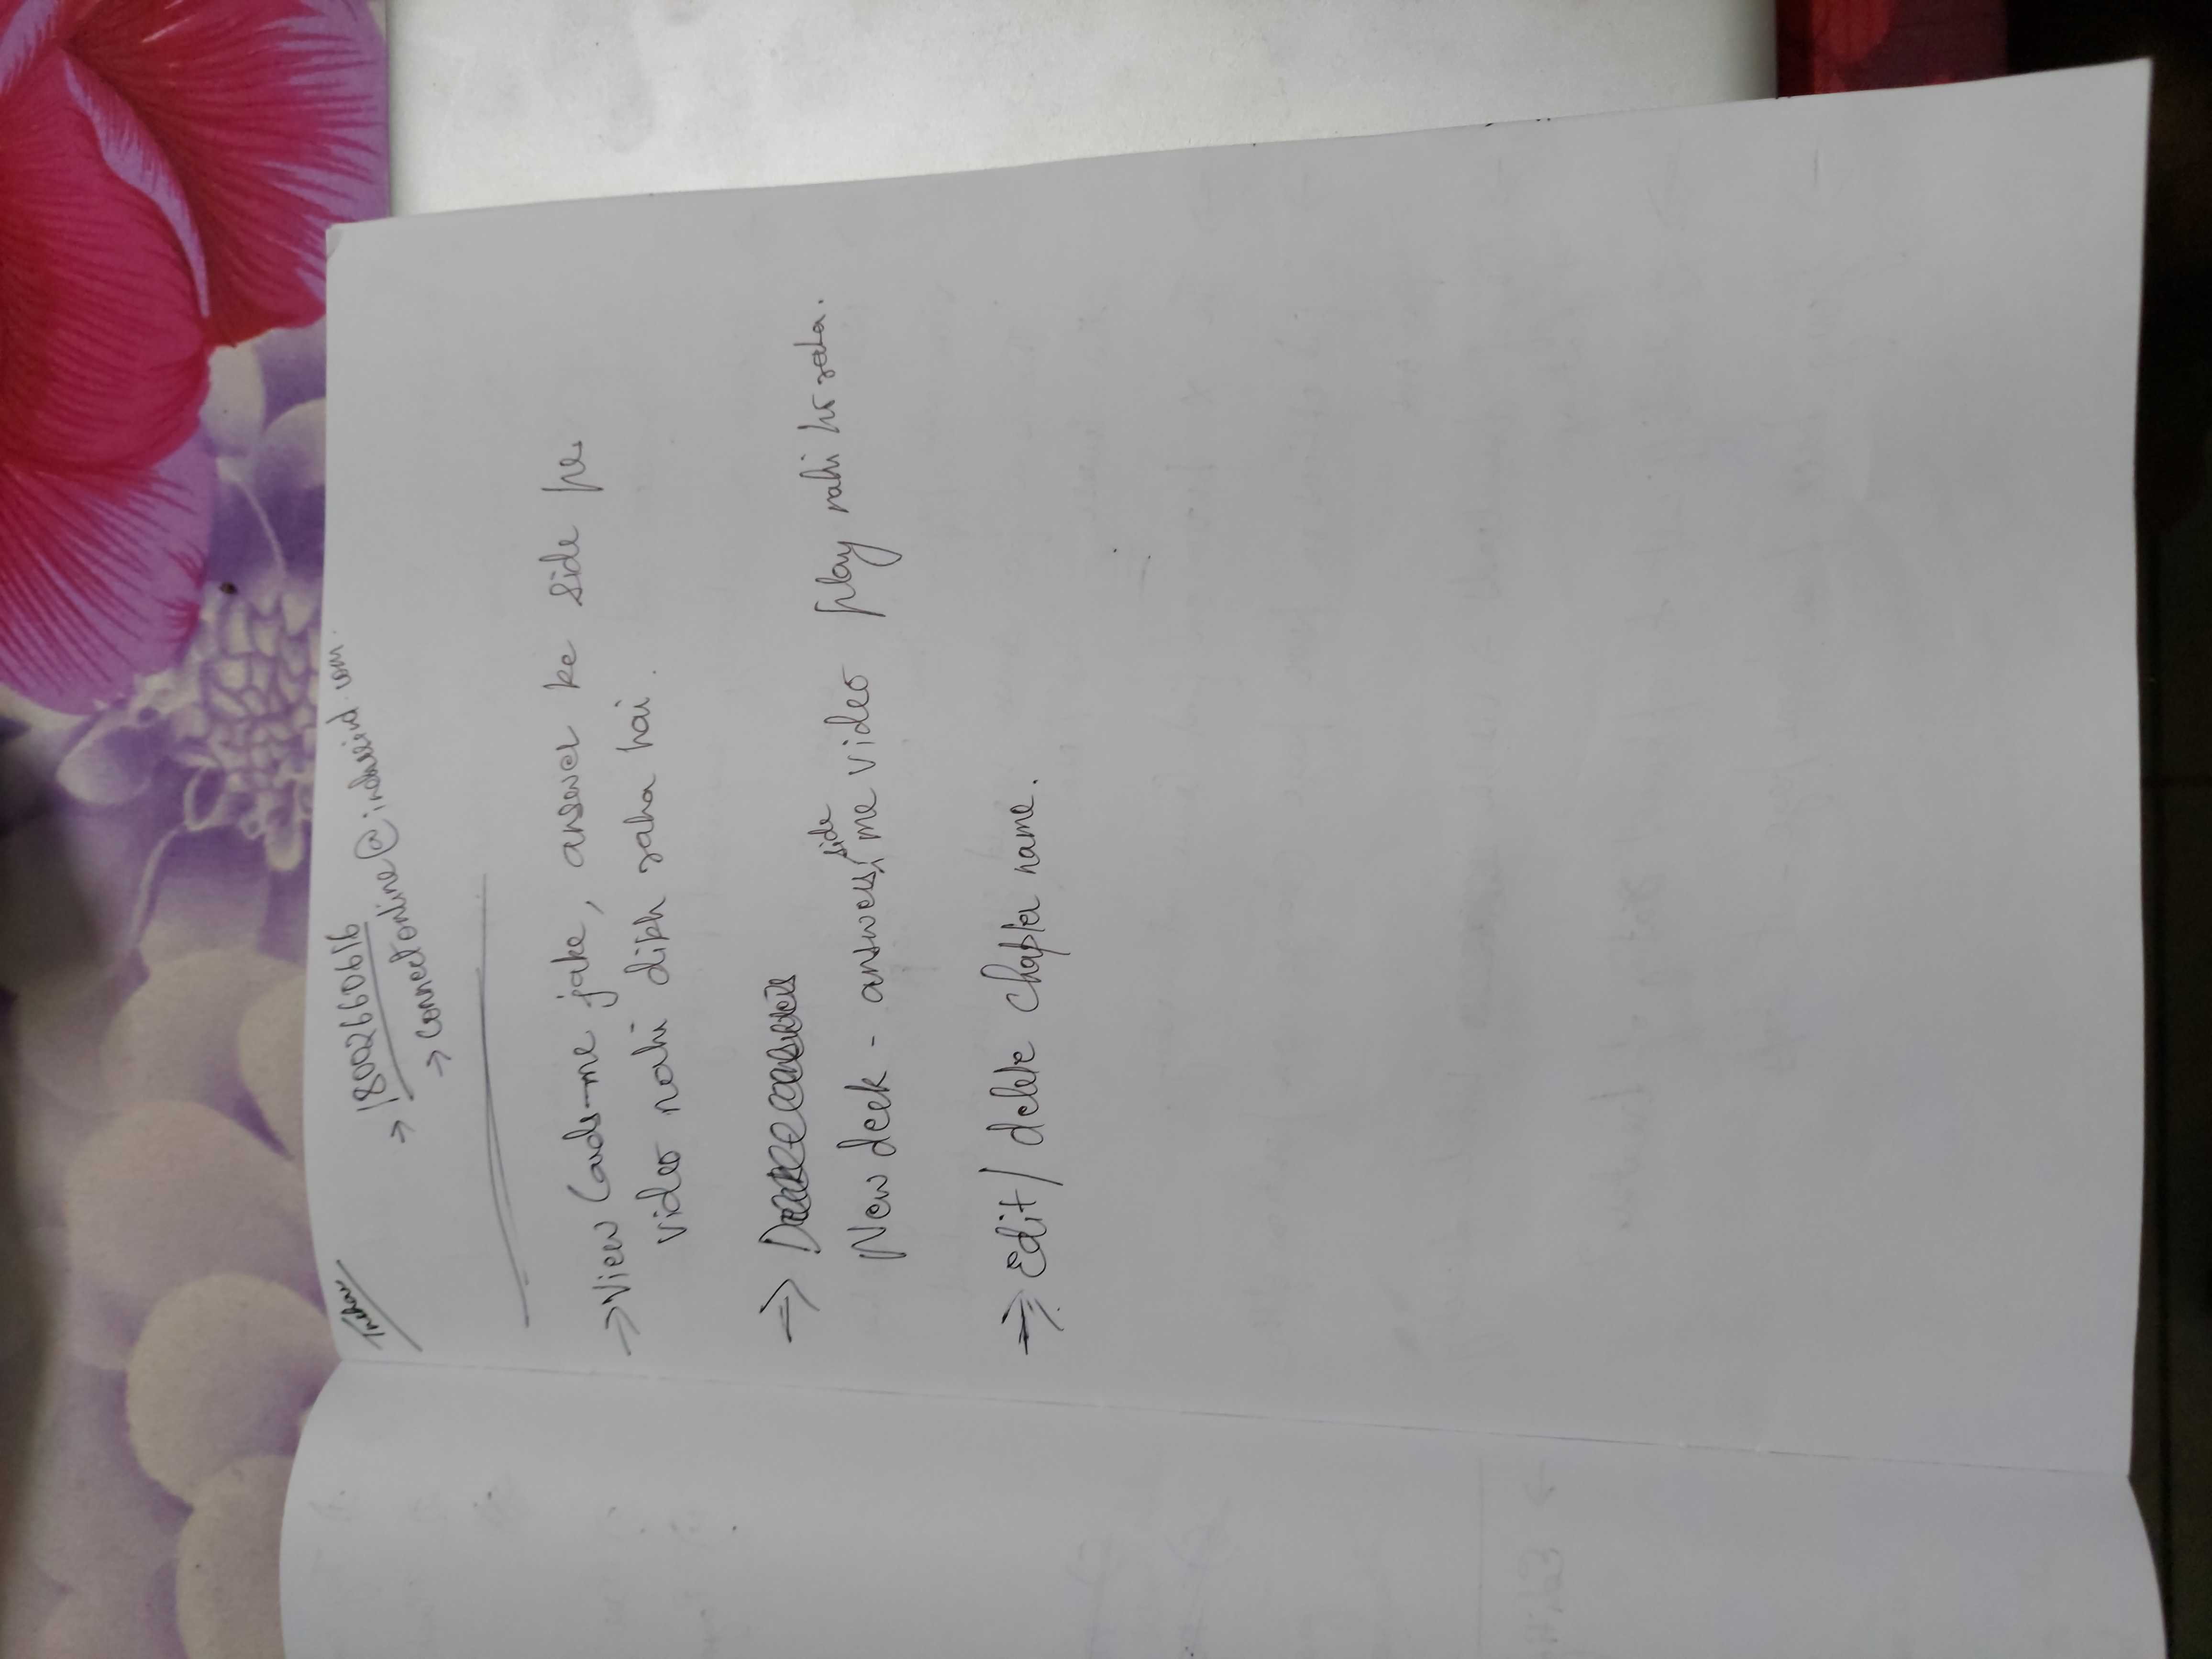 → 18002660616
→ connectonline@indusind.com.
→ View Cards-me jake, answer ke side pe
video nahi dikh raha hai.
→
side
New deck - answers, me video play nahi ho raha.
→ Edit/ delete chapter name.